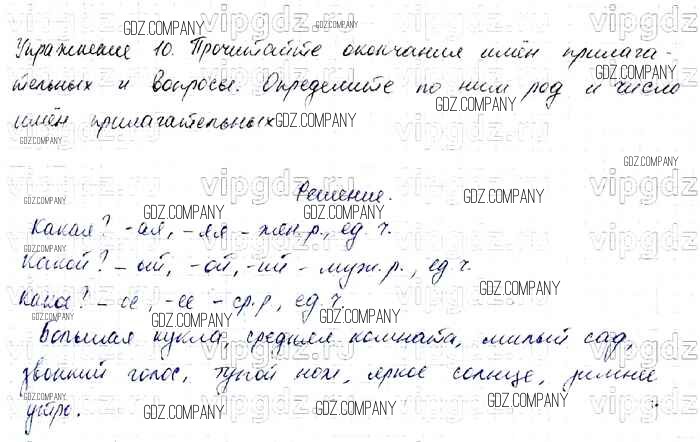 Упражнение 10. Прочитайте окончания имён прилага-
тельных и вопросы. Определите по ним род и число
имён прилагательных
Решение.
Какая? -ая, -яя - жен.р., ед.ч.
Какой? - ый, -ой, -ий - муж.р., ед.ч.
Какое? - ое, -ее - ср.р, ед.ч.
Большая кукла, средняя комната, милый сад,
звонкий голос, тупой нож, яркое солнце, зимнее
утро.
GDZ.COMPANY
vipgdz.ru